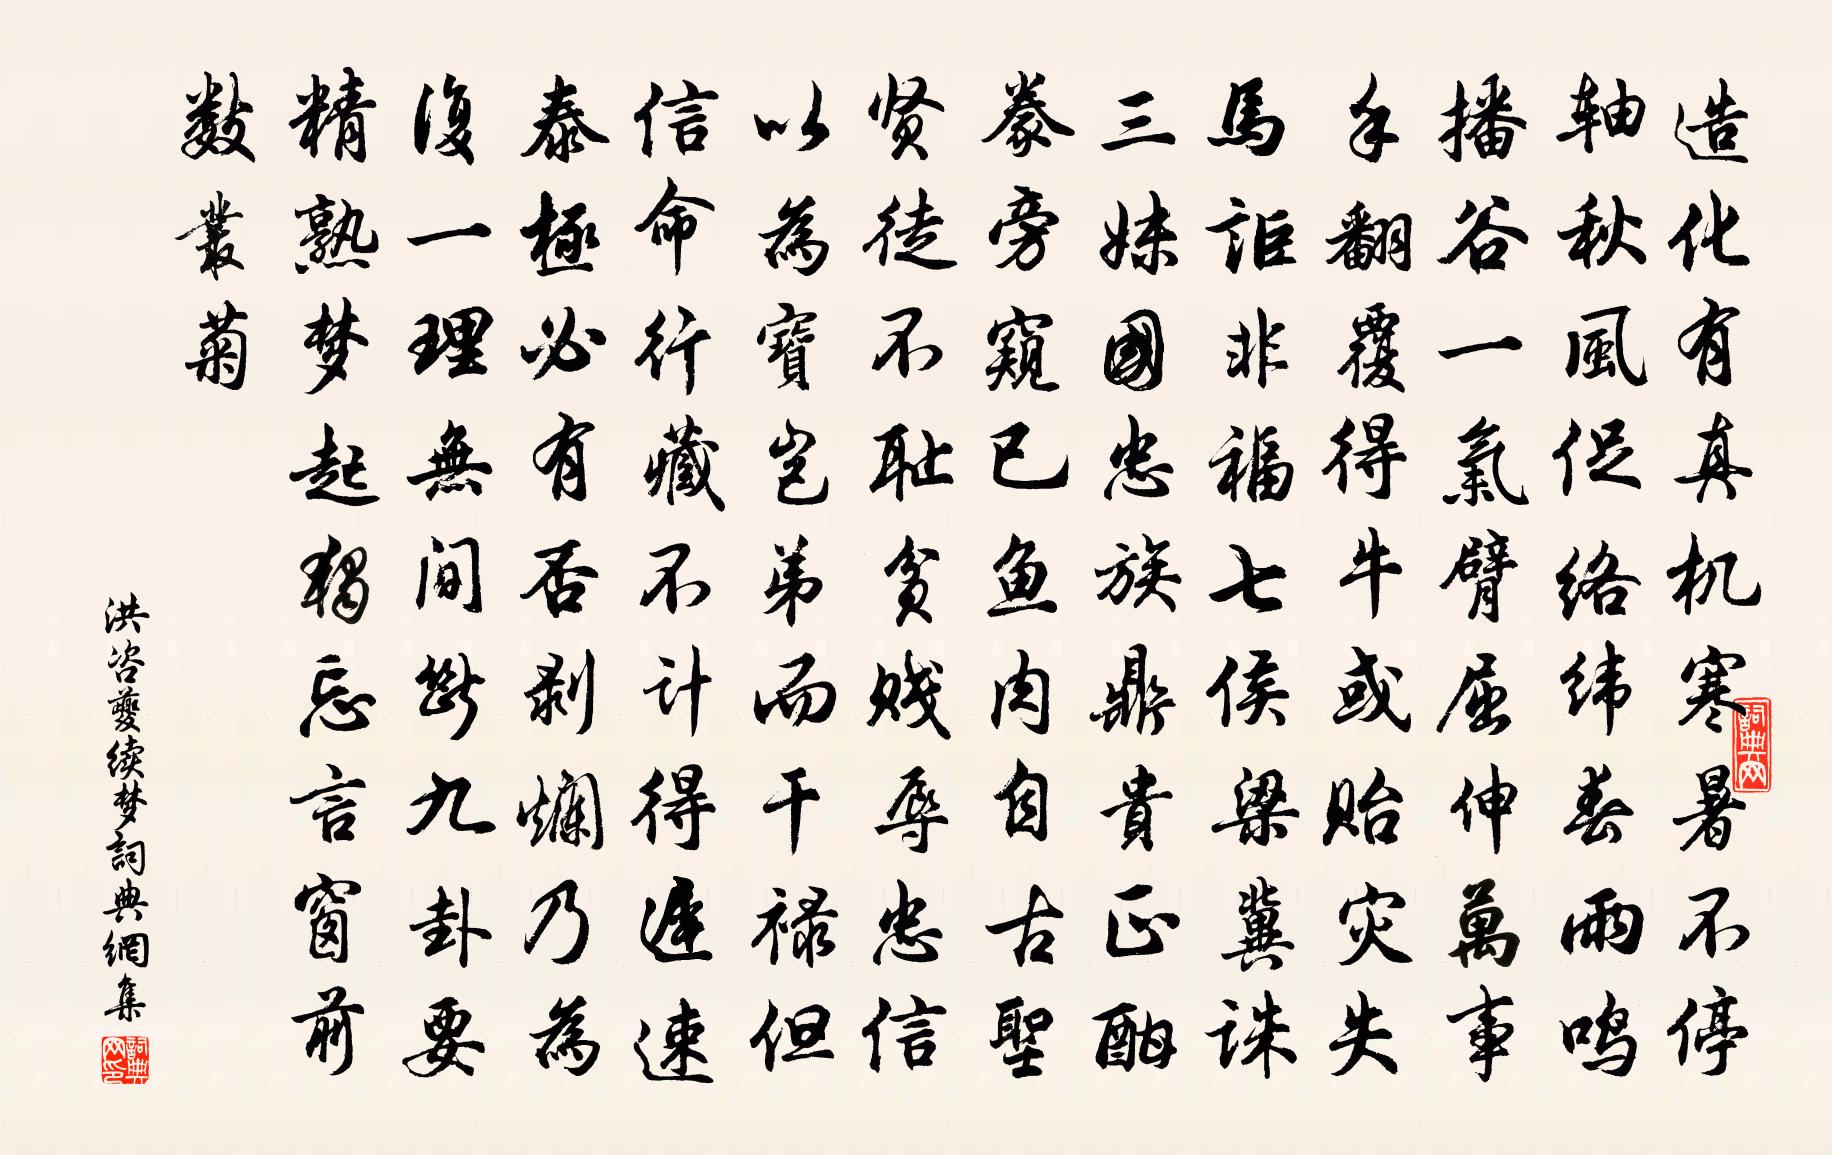 造化有真机寒暑不停
轴秋風促络纬春雨鸣
播谷一氣臂屈伸萬事
手翻覆得牛或贻灾失
馬詎非福七侯梁冀诛
三妹國忠族鼎貴正酣
豢旁窺已鱼肉自古聖
贤徒不耻貧贱辱忠信
以為寶岂弟而干禄但
信命行藏不计得遲速
泰極必有否剥爛乃為
復一理無间断九卦要
精熟梦起独忘言窗前
数叢菊
洪咨夔续梦詞典網集
詞典网
詞典网印